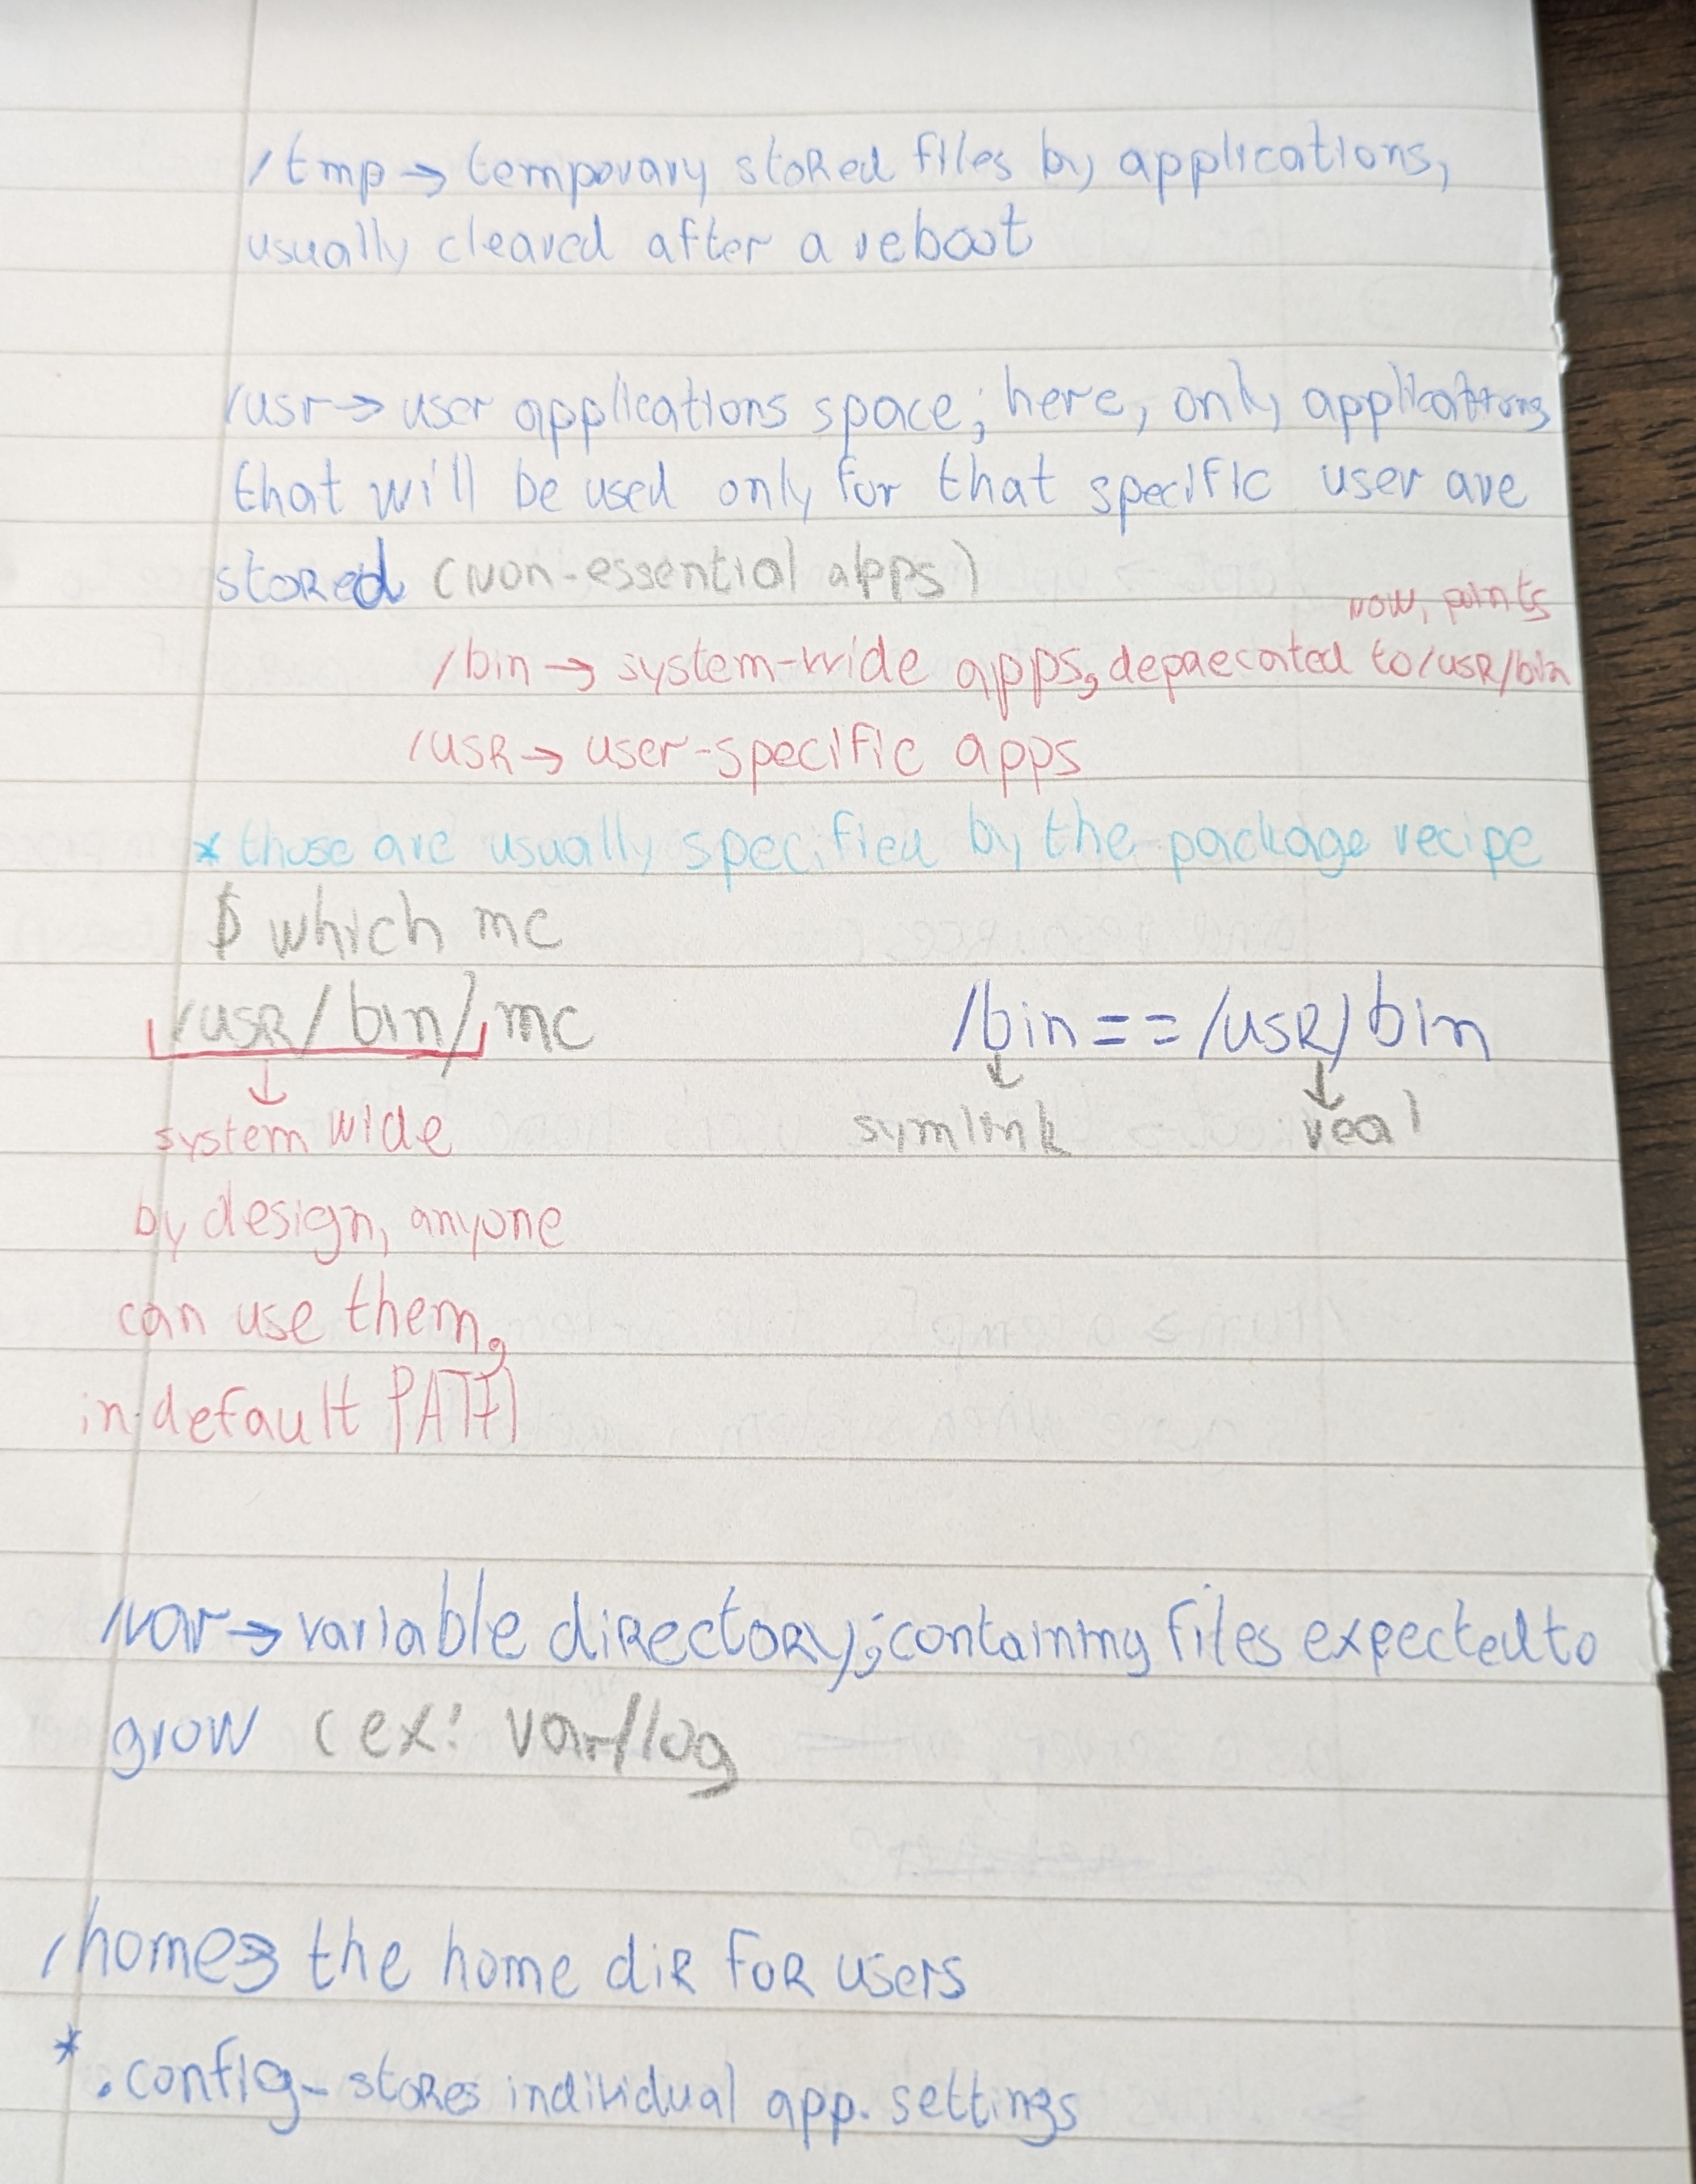 /tmp → temporary stored files by applications,
usually cleared after a reboot
/usr → user applications space; here, only applications
that will be used only for that specific user are
stored (non-essential apps)
now, points
/bin → system-wide apps, depraecated to /usr/bin
/usr → user-specific apps
* those are usually specified by the package recipe
$ which mc
/usr/bin/mc
/bin == /usr/bin
↓ ↓ ↓
system wide
symlink real
by design, anyone
can use them,
in default PATH
/var → variable directory; containing files expected to
grow (ex: var/log
/home → the home dir for users
* .config - stores individual app. settings